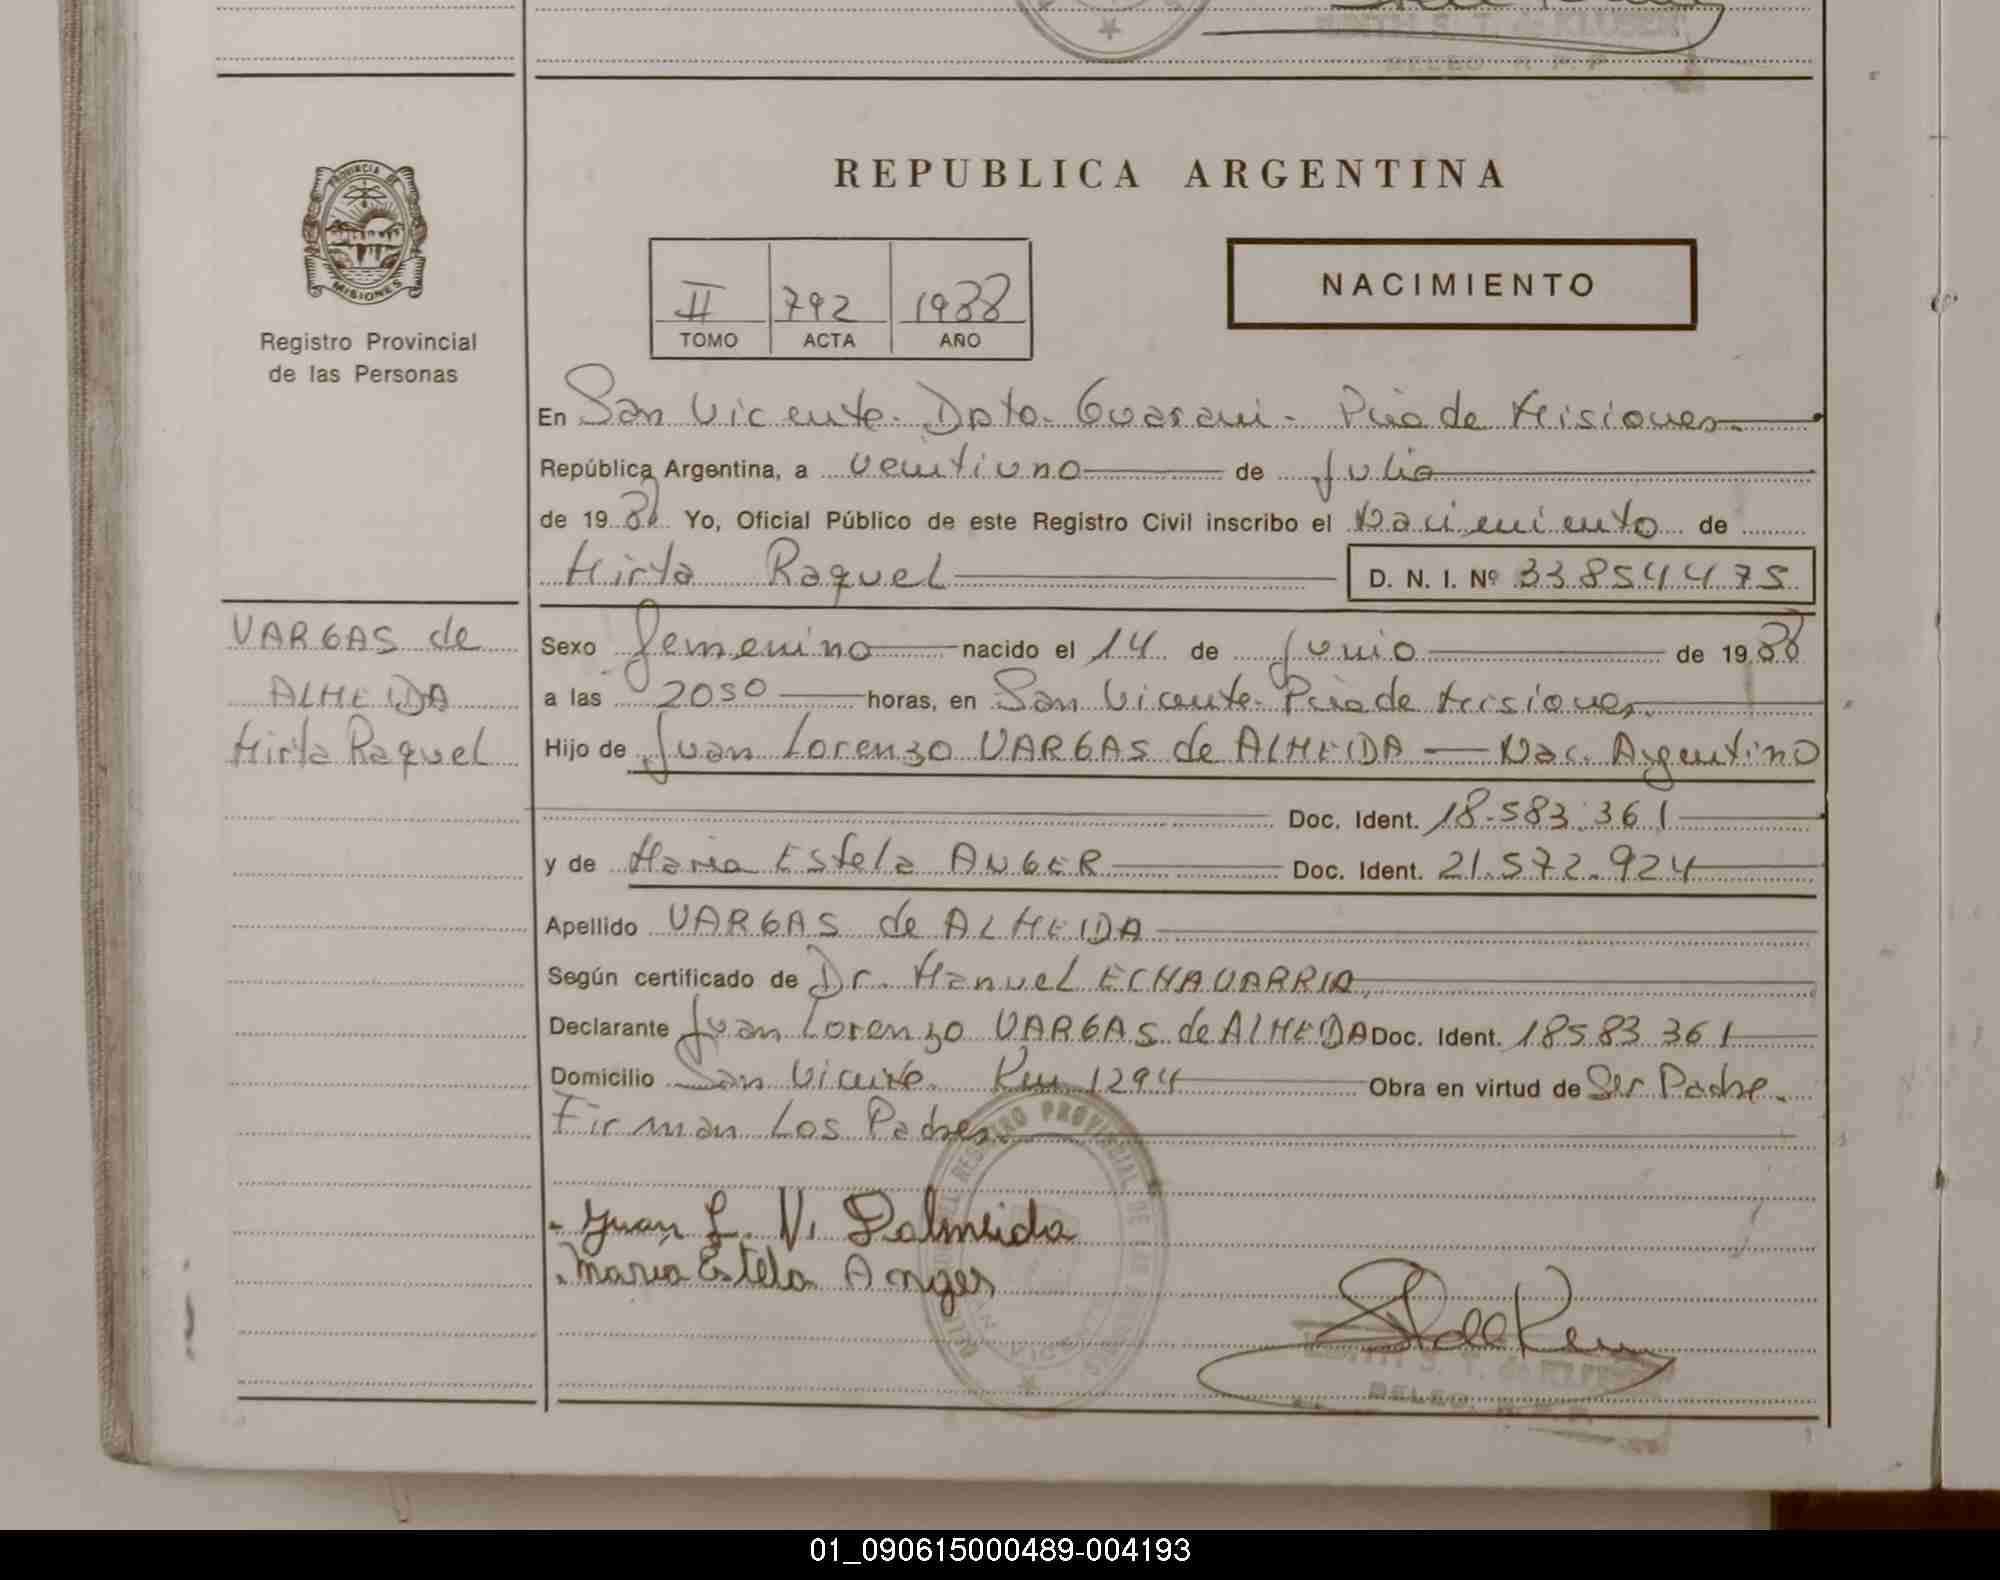 REPUBLICA ARGENTINA
PROVINCIA DE
MISIONES
Registro Provincial
de las Personas
II 792 1988
TOMO ACTA AÑO
NACIMIENTO
En San Vicente - Dpto - Guarani - Pcia de Misiones
República Argentina, a veintiuno de Julio
de 1988 Yo, Oficial Público de este Registro Civil inscribo el Nacimiento de
Mirta Raquel D. N. I. Nº 33854475
VARGAS de
ALMEIDA
Mirta Raquel
Sexo Femenino nacido el 14 de Junio de 1988
a las 2050 horas, en San Vicente - Pcia de Misiones.
Hijo de Juan Lorenzo VARGAS de ALMEIDA — Nac. Argentino
Doc. Ident. 18.583.361
y de Maria Estela ANGER Doc. Ident. 21.572.924
Apellido VARGAS de ALMEIDA
Según certificado de Dr. Manuel ECHAVARRIA
Declarante Juan Lorenzo VARGAS de ALMEIDA Doc. Ident. 18583361
Domicilio San Vicente Km 1294 Obra en virtud de Ser Padre.
Firman Los Padres.
REGISTRO PROVINCIAL DE LAS
Juan L. V. Dalmeida
Maria Estela Anger
01_090615000489-004193